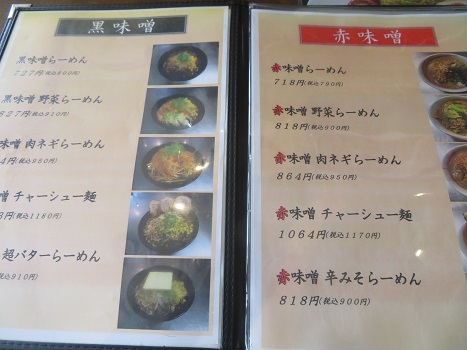 黒味噌
黒味噌らーめん
727円(税込800円)
黒味噌 野菜らーめん
827円(税込910円)
味噌 肉ネギらーめん
4円(税込950円)
噌 チャーシュー麺
円(税込1180円)
超バターらーめん
税込910円)
赤味噌
赤味噌らーめん
718円(税込790円)
赤味噌 野菜らーめん
818円(税込900円)
赤味噌 肉ネギらーめん
864円(税込950円)
赤味噌 チャーシュー麺
1064円(税込1170円)
赤味噌 辛みそらーめん
818円(税込900円)